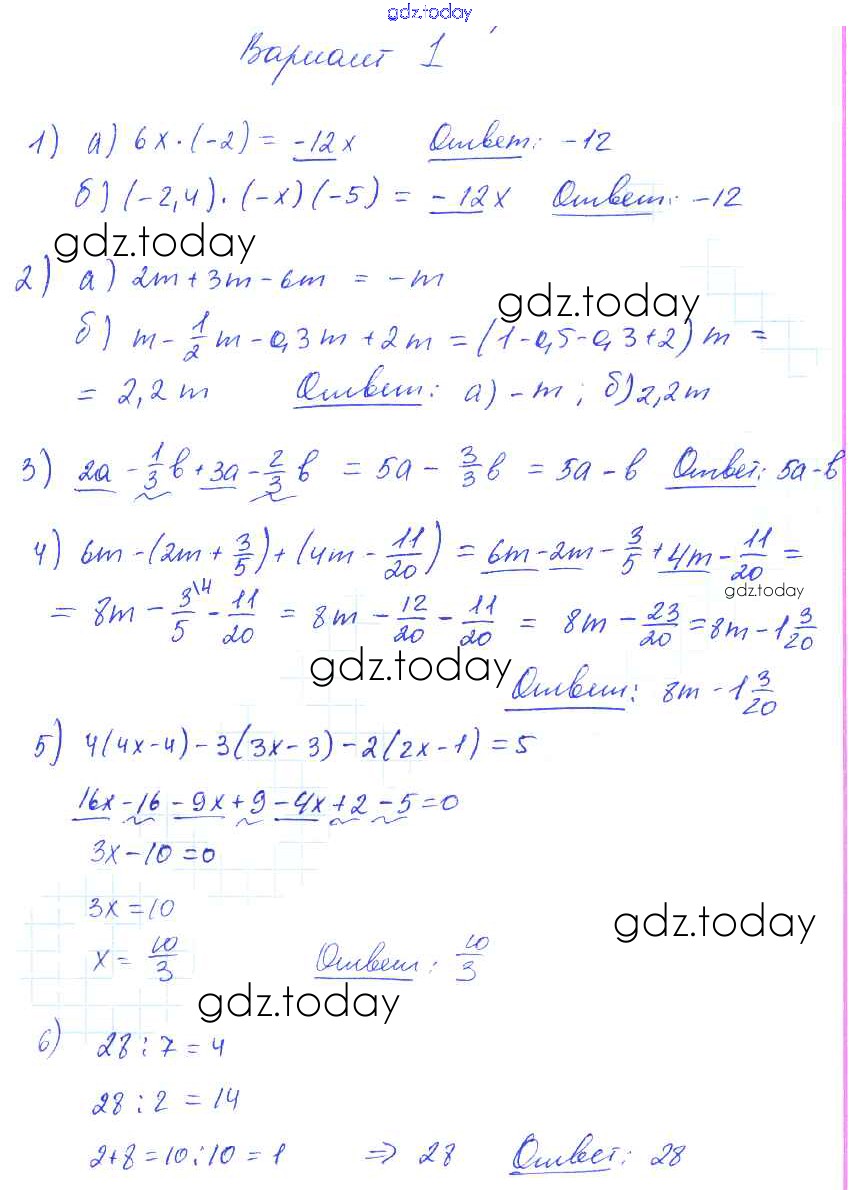 gdz.today
Вариант 1
1) а) 6x·(-2) = -12x Ответ: -12
б) (-2,4)·(-x)(-5) = -12x Ответ: -12
gdz.today
2) а) 2m+3m-6m = -m
gdz.today
б) m - 1/2 m - 0,3m + 2m = (1-0,5-0,3+2)m =
= 2,2m Ответ: а) -m; б) 2,2m
3) 2a - 1/3 b + 3a - 2/3 b = 5a - 3/3 b = 5a - b Ответ: 5a-b
4) 6m-(2m + 3/5)+(4m - 11/20) = 6m-2m - 3/5 + 4m - 11/20 =
gdz.today
= 8m - 3\4/5 - 11/20 = 8m - 12/20 - 11/20 = 8m - 23/20 = 8m - 1 3/20
gdz.today
Ответ: 8m - 1 3/20
5) 4(4x-4)-3(3x-3)-2(2x-1)=5
16x-16-9x+9-4x+2-5=0
3x-10=0
3x=10
gdz.today
x = 10/3 Ответ: 10/3
gdz.today
6) 28:7=4
28:2=14
2+8=10:10=1 => 28 Ответ: 28